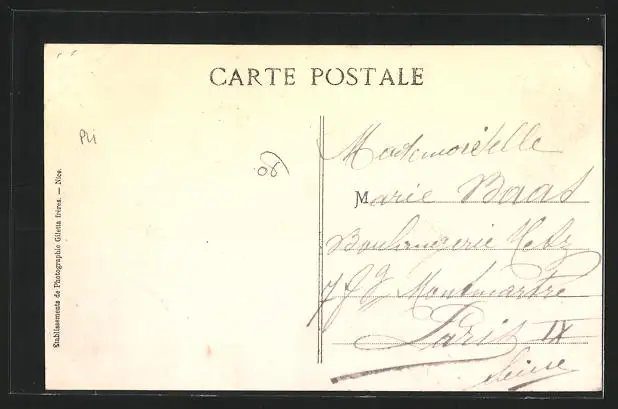 CARTE POSTALE
Pli
06
Etablissements de Photographie Giletta frères. — Nice.
Mademoiselle
Marie Baas
Boulangerie Metz
7 fg Montmartre
Paris IX
Seine